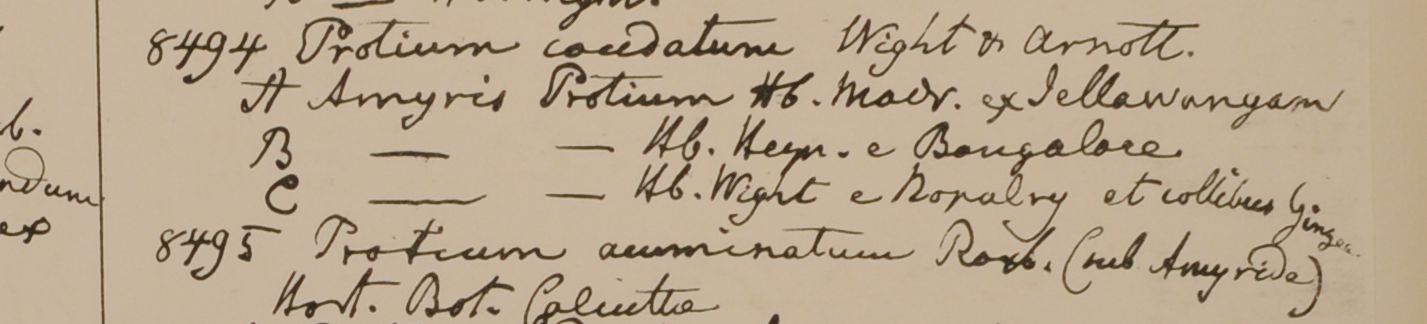 8494 Protium caudatum Wight & Arnott.
A Amyris Protium Hb. Madr. ex Jellawungam
b. B — — Hb. Heyn. e Bangalore
ndum C — — Hb. Wight e Nopalry et collibus Gingee
ex 8495 Protium acuminatum Roxb. (sub Amyride)
Hort. Bot. Calcutta